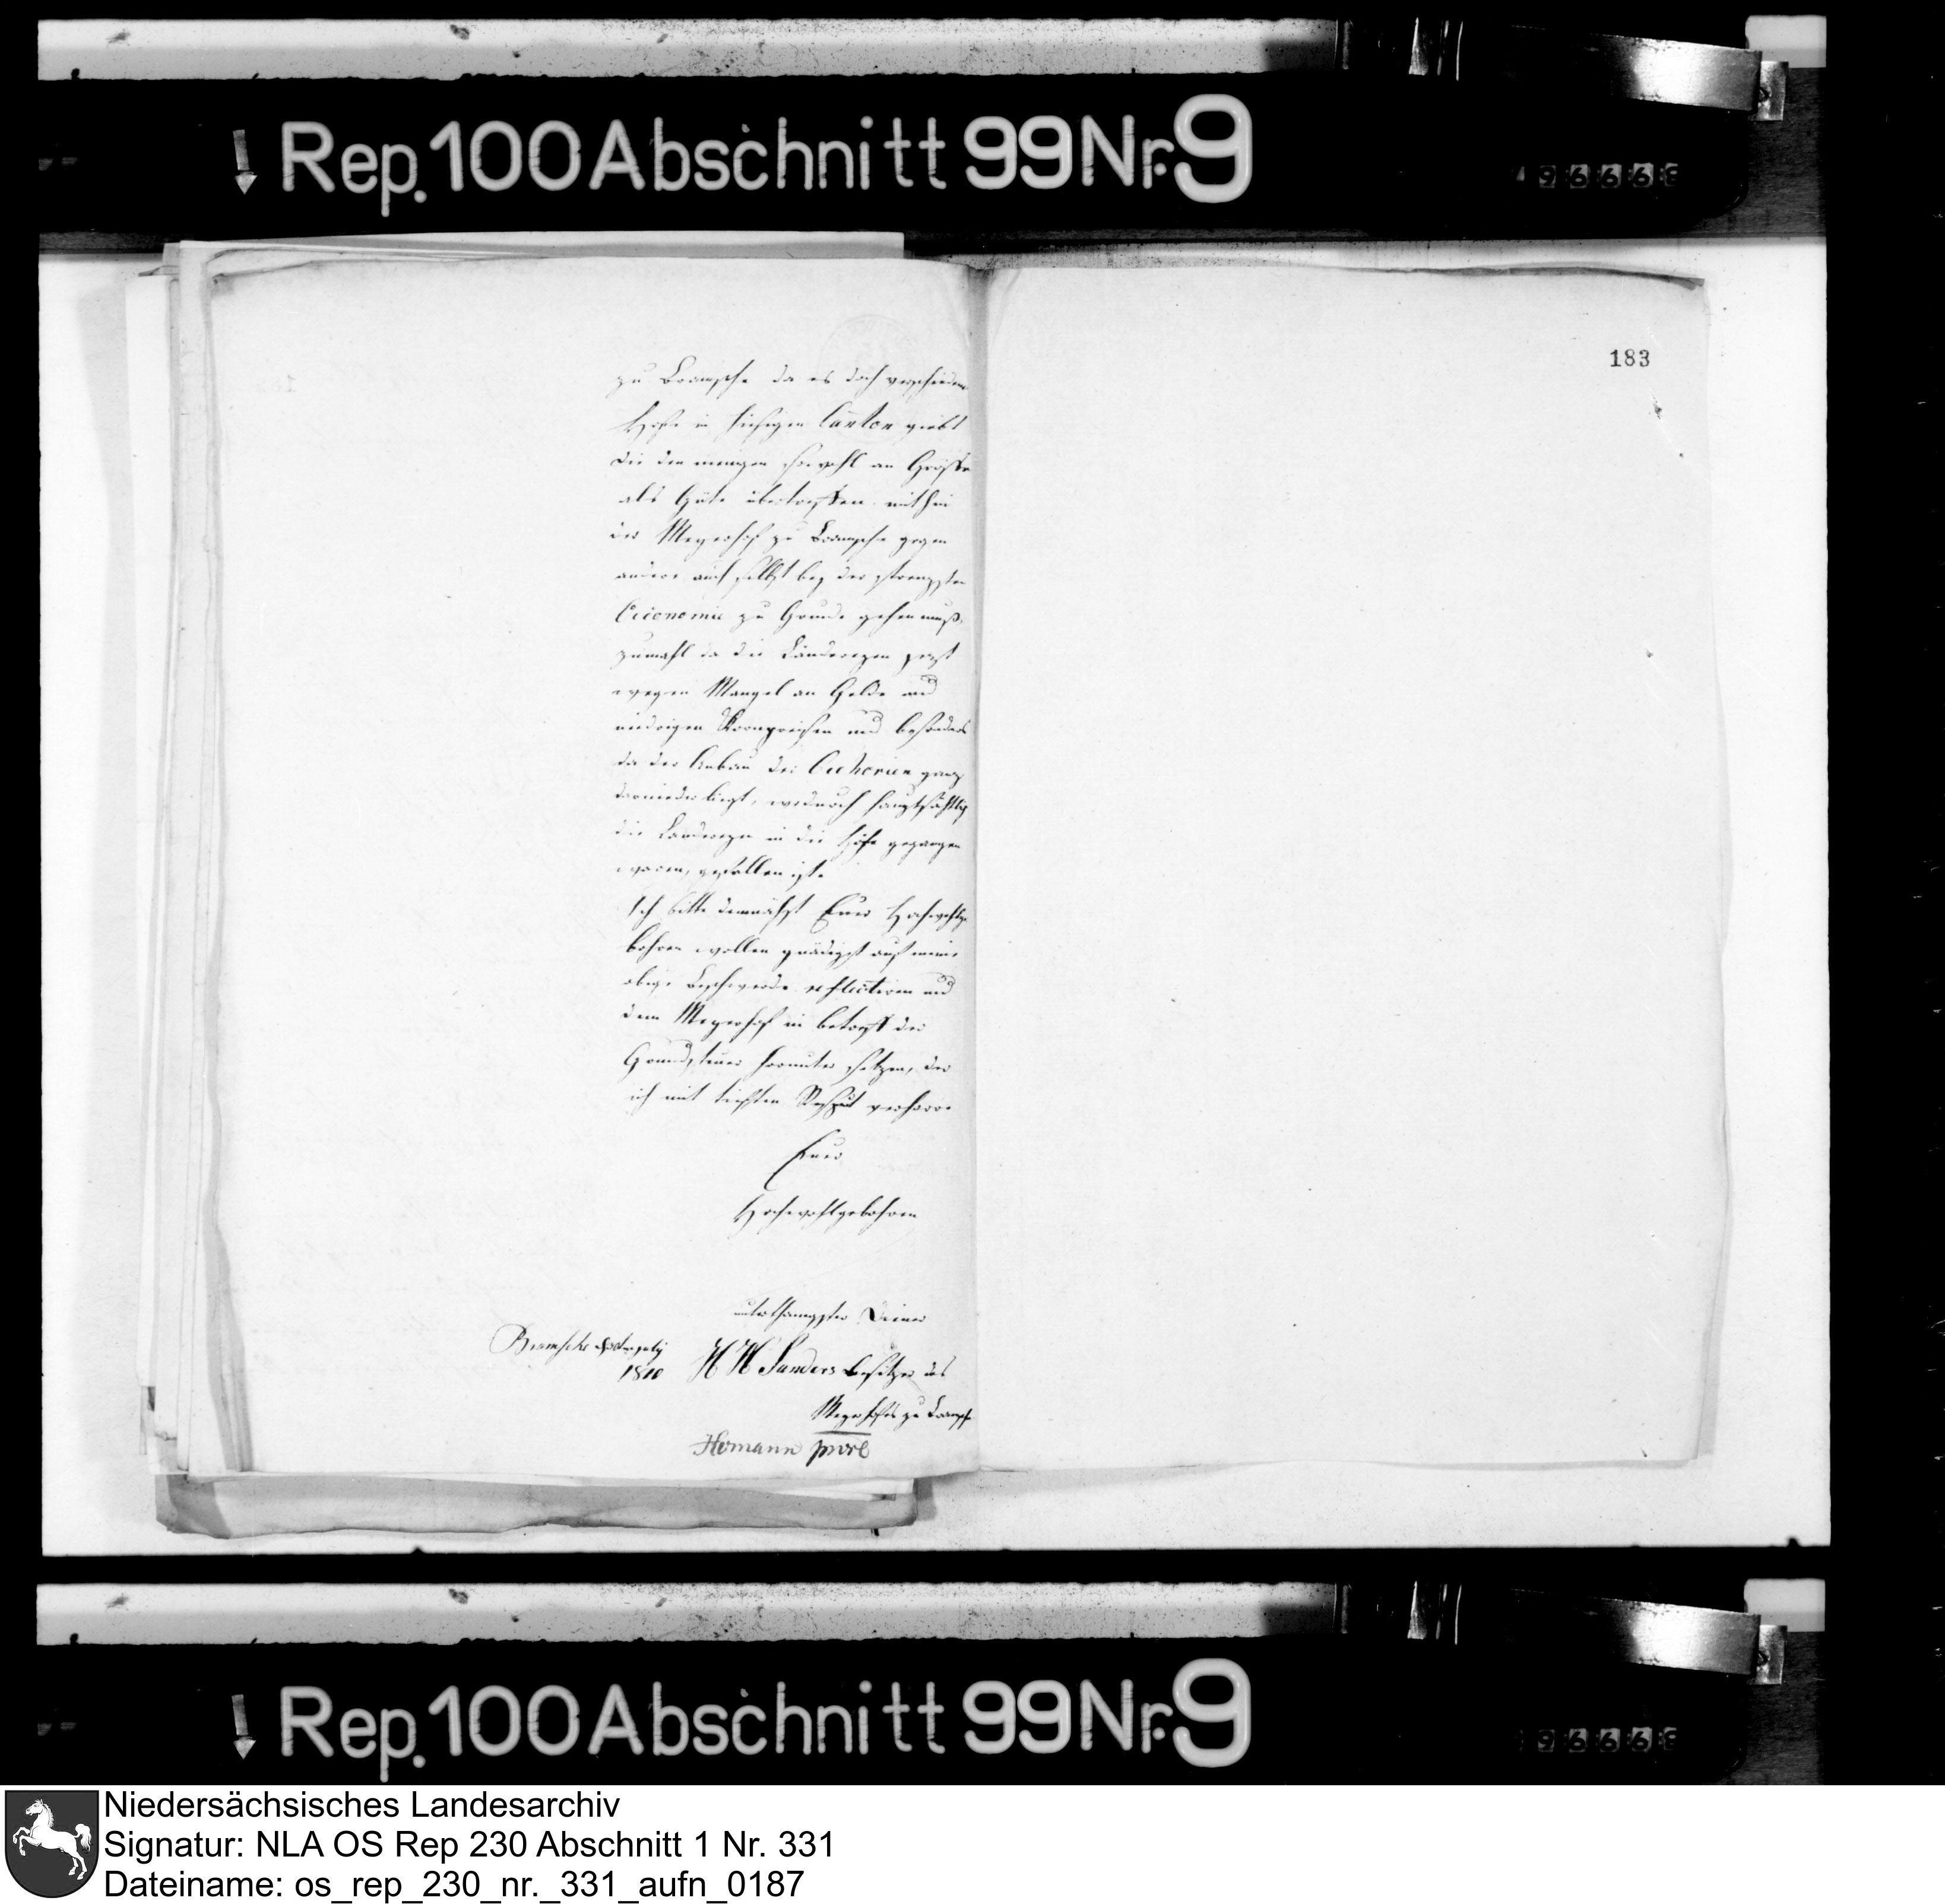 Rep. 100 Abschnitt 99 Nr. 9
49666
183
zu Bramsche da es doch verschiedene
Höfe in hiesigen Canton giebt
die den meinigen sowohl an Größe
als Güte übertreffen mithin
der Meyerhof zu Bramsche gegen
andere auch selbst bey der strengsten
Oeconomie zu Grunde gehen muß,
zumahl da die Ländereyen jezt
wegen Mangel an Gelde und
niedrigen Kornpreisen und besonders
da der Anbau der Cichorien ganz
darnieder liegt, wodurch hauptsächlig
die Landereyen in die Höhe gegangen
waren, gefallen ist.
Ich bitte demnächst Euer Hochwohlge
bohren wollen gnädigst auf meine
obige Beschwerde reflectiren und
dem Meyerhof in betreff der
Grundsteuer herunter setzen, der
ich mit tiefsten Respect verharre
Euer
Hochwohlgebohren
unterthänigster Diener
Bramsche
1810
H W Sanders Besitzer des
Meyerhofes zu Bramsche
Homann
Rep. 100 Abschnitt 99 Nr. 9
9666
Niedersächsisches Landesarchiv
Signatur: NLA OS Rep 230 Abschnitt 1 Nr. 331
Dateiname: os_rep_230_nr._331_aufn_0187